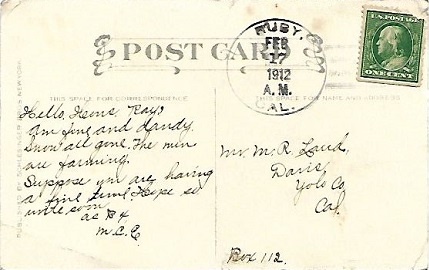 POST CARD
RUBY,
FEB
17
1912
A.M.
CAL.
U.S. POSTAGE
ONE CENT
THIS SPACE FOR CORRESPONDENCE
THIS SPACE FOR NAME AND ADDRESS
Hello,
Am fine and dandy.
Snow all gone. The men
are farming.
Suppose you are having
a fine time. Hope so
write soon
as B4
M.C.E.
Mr. M. R. Laud,
Davis,
Yolo Co.
Cal.
Box 112.